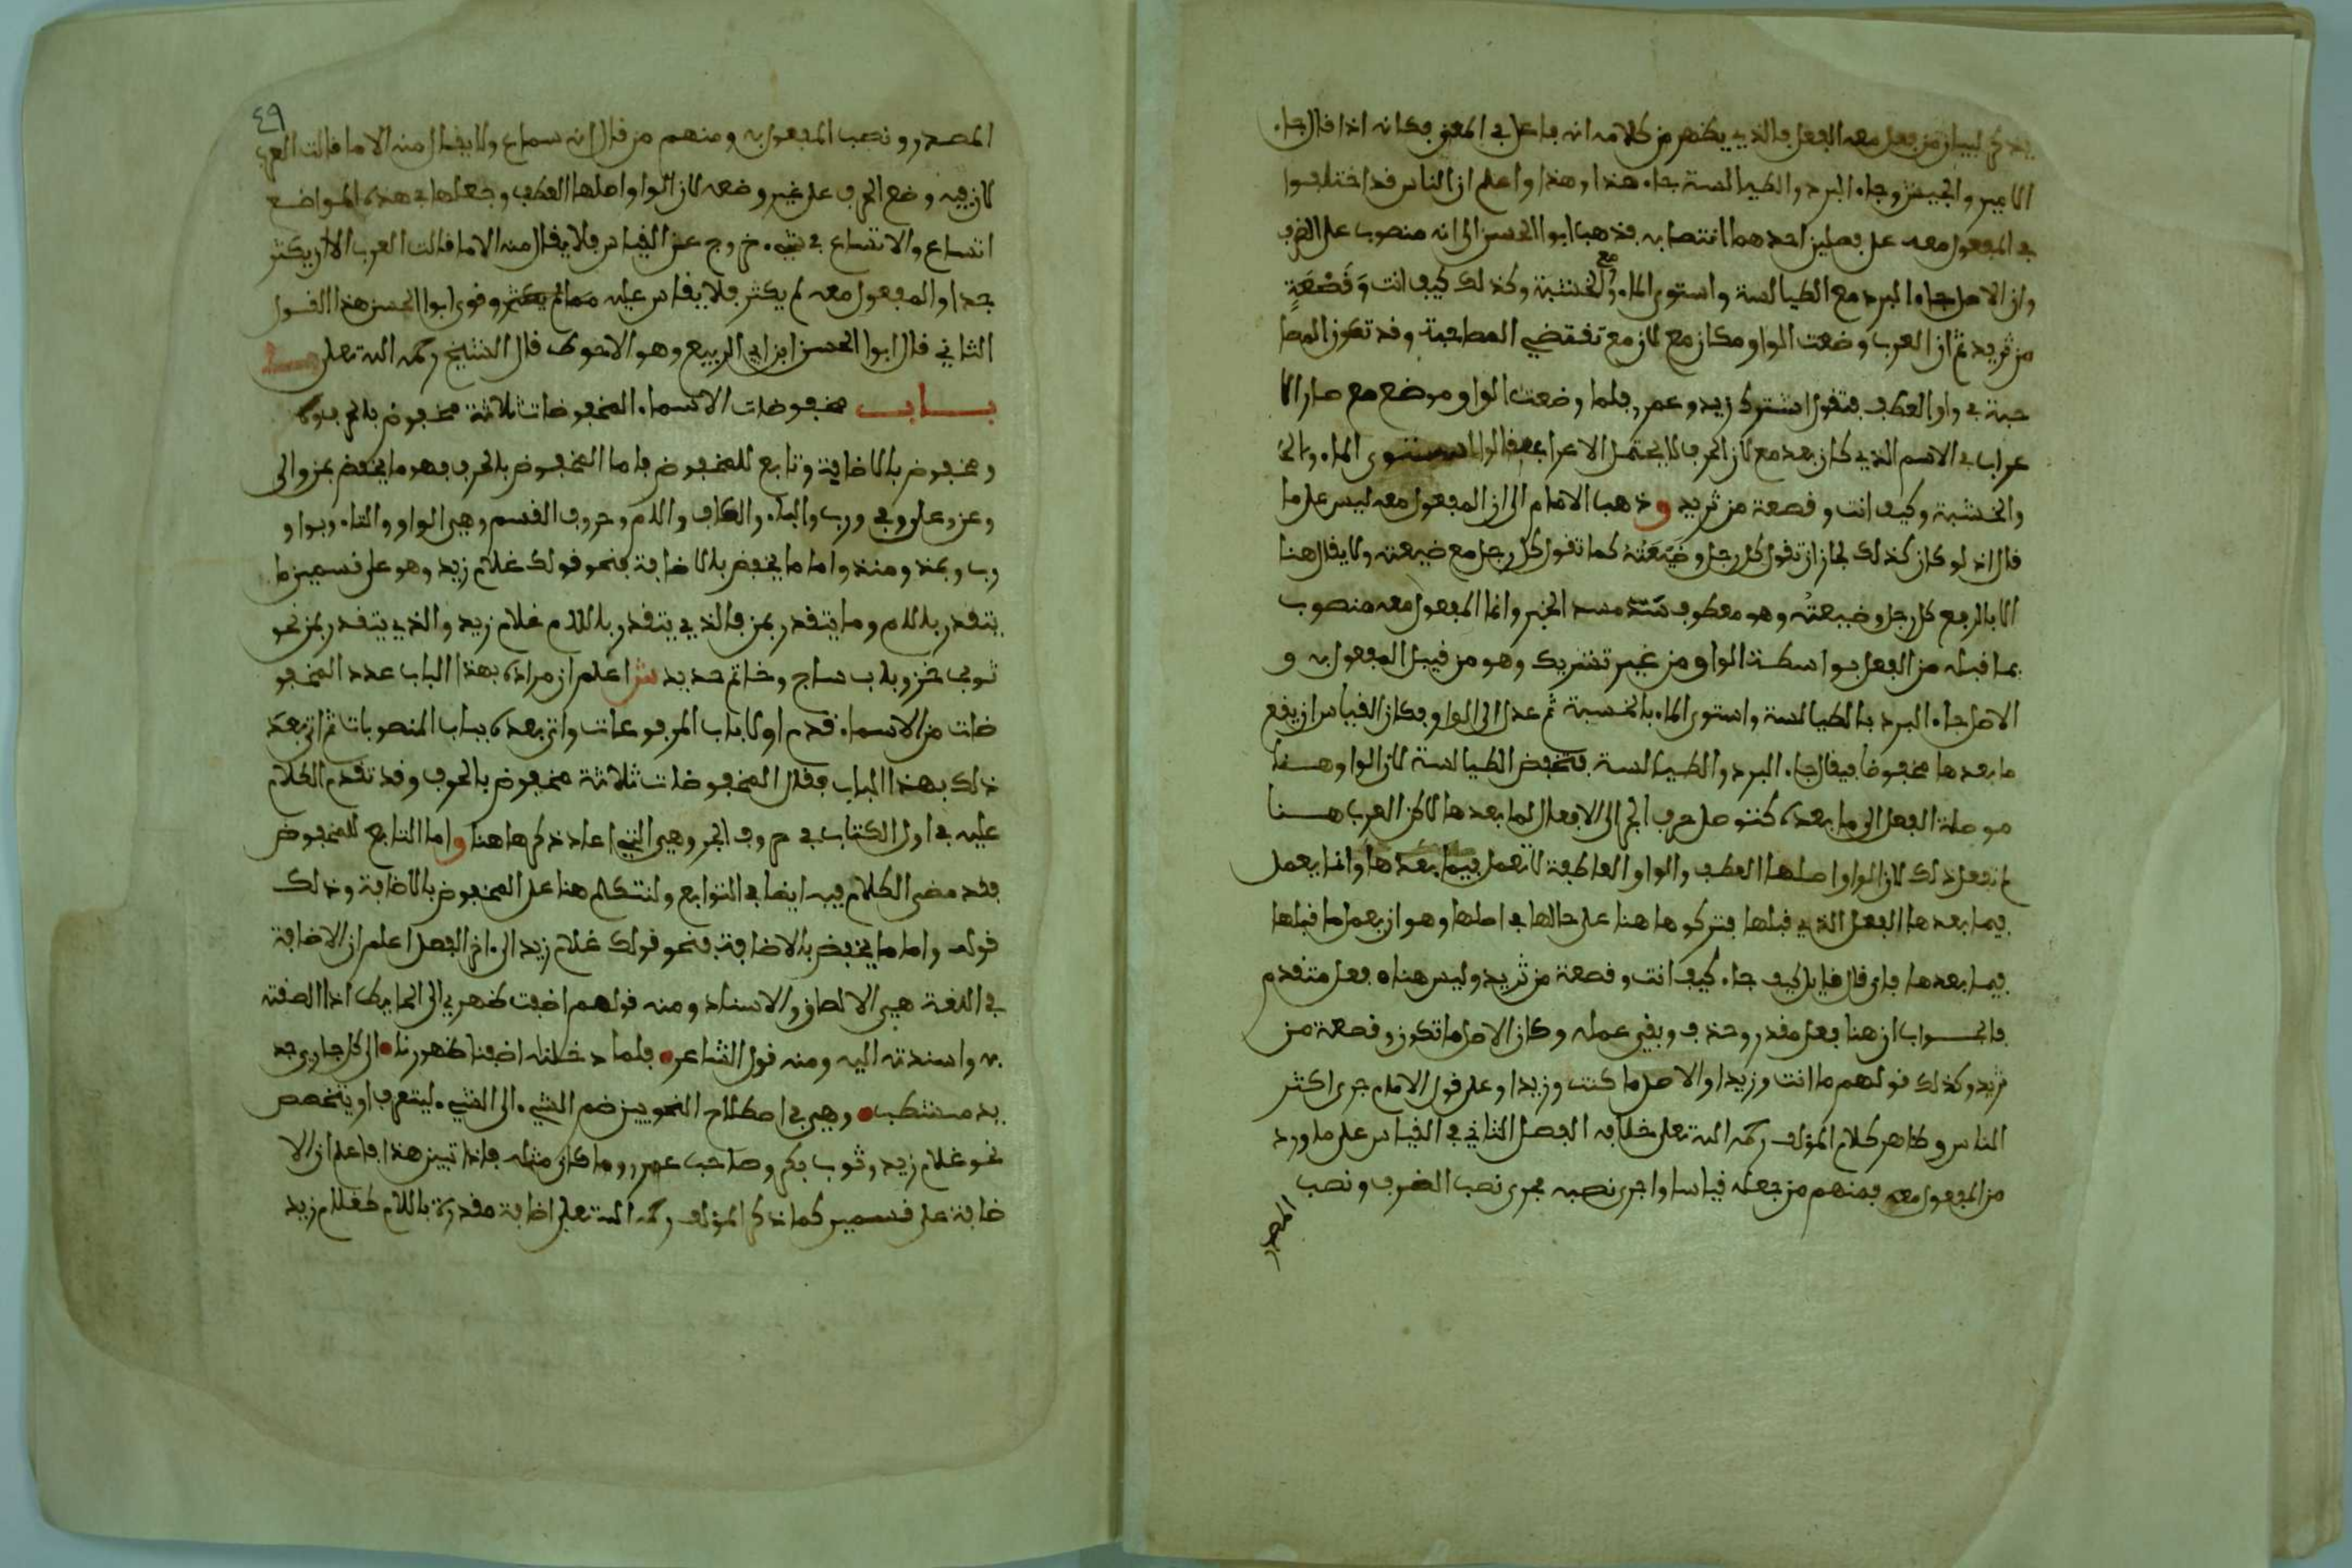 يذكر لبيان من فعل معه الفعل فالذي يظهر من كلامه انه فاعل في المعنى فكانه اذا قال جاء
الامير والجيش وجاء البرد والطيالسة جاء هذا وهذا واعلم ان الناس قد اختلفوا
في المفعول معه على فصلين احدهما انتصابه فذهب ابو الحسن الى انه منصوب على الظرف
وان الاصل جاء البرد مع الطيالسة واستوى الماء مع الخشبة وكذلك كيف انت وَقَصْعَةٍ
من ثريد ثم ان العرب وضعت الواو مكان مع لان مع تقتضي المصاحبة وقد تكون المصا
حبة في واو العطف فتقول اشترك زيد وعمرو فلما وضعت الواو موضع مع صار الا
عراب في الاسم الذي كان بعد مع لان الحرف لا يحتمل الاعراب فقالوا استوى الماء
والخشبة وكيف انت وقصعة من ثريد وذهب الامام الى ان المفعول معه ليس على ما
قال اذ لو كان كذلك لجاز ان تقول كل رجل وضَيْعَتَهُ كما تقول كل رجل مع ضيعته ولا يقال هنا
الا بالرفع كل رجل وضيعتُه وهو معطوف سَدّ مسد الخبر وانما المفعول معه منصوب
بما قبله من الفعل بواسطة الواو من غير تشريك وهو من قبيل المفعول به و
الاصل جاء البرد بالطيالسة واستوى الماء بالخشبة ثم عدل الى الواو فكان القياس ان يقع
ما بعدها مخفوضا فيقال جاء البرد والطيالسة فتخفض الطيالسة لان الواو هنا
موصلة الفعل الى ما بعده كتوصل حرف الجر الى الافعال لما بعدها لاكن العرب هنا
لم تفعل ذلك لان الواو اصلها العطف والواو العاطفة لا تعمل فيما بعدها وانما يعمل
فيما بعدها الفعل الذي قبلها فتركوها هنا على حالها في اصلها وهو ان يعمل ما قبلها
فيما بعدها فان قال قايل كيف جاء كيف انت وقصعة من ثريد وليس هناه فعل متقدم
فالجواب ان هنا فعل مقدر وحذف وبقي عمله وكان الاصل ما تكون وقصعة من
ثريد وكذلك قولهم ما انت وزيدا والاصل ما كنت وزيدا وعلى قول الامام جرى اكثر
الناس وظاهر كلام المؤلف رحمه الله تعلى خلافه الفصل الثاني في القياس على ما ورد
من المفعول معه فمنهم من جعله قياسا واجرى نصبه مجرى نصب الظرف ونصب
المصدر
٤٩
المصدر ونصب المفعول به ومنهم من قال انه سماع ولا يقال منه الا ما قالت العرب
لان فيه وضع الحرف على غير وضعه لان الواو اصلها العطف وجعلها في هذه المواضع
اتساع والاتساع في شيء خروج عن القياس فلا يقال منه الا ما قالت العرب الا ان يكثر
جدا والمفعول معه لم يكثر فلا يقاس عليه ما لم يكثر وقوى ابو الحسن هذا القول
الثاني قال ابو الحسن ابن ابي الربيع وهو الاحوط قال الشيخ رحمه الله تعلى
بـــاب مخفوضات الاسماء المخفوضات ثلاثة مخفوض بالحرف
ومخفوض بالاضافة وتابع للمخفوض فاما المخفوض بالحرف فهو ما يخفض بمن والى
وعن وعلى وفي ورب والباء والكاف واللام وحروف القسم وهي الواو والتاء وبواو
رب وبمذ ومنذ واما ما يخفض بالاضافة فنحو قولك غلام زيد وهو على قسمين ما
يتقدر باللام وما يتقدر بمن فالذي يتقدر باللام غلام زيد والذي يتقدر بمن نحو
ثوب خز وباب ساج وخاتم حديد ش اعلم ان مراده بهذا الباب عدد المخفو
ضات من الاسماء قدم اولا باب المرفوعات واتى بعده بباب المنصوبات ثم اتى بعد
ذلك بهذا الباب فقال المخفوضات ثلاثة مخفوض بالحرف وقد تقدم الكلام
عليه في اول الكتاب في حروف الجر وهي التي اعاد ذكرها هنا واما التابع للمخفوض
فقد مضى الكلام فيه ايضا في التوابع ولنتكلم هنا على المخفوض بالاضافة وذلك
قوله واما ما يخفض بالاضافة فنحو قولك غلام زيد الى اخر الفصل اعلم ان الاضافة
في اللغة هي الالصاق والاسناد ومنه قولهم اضفت ظهري الى الحايط اذا الصقته
به واسندته اليه ومنه قول الشاعر فلما دخلناه اضفنا ظهورنا الى كل حاري جد
يد مشطب وهي في اصطلاح النحويين ضم الشيء الى الشيء ليتعرف او يتخصص
نحو غلام زيد وثوب بكر وصاحب عمرو وما كان مثله فاذا تبين هذا فاعلم ان الا
ضافة على قسمين كما ذكر المؤلف رحمه الله تعلى اضافة مقدرة باللام كغلام زيد